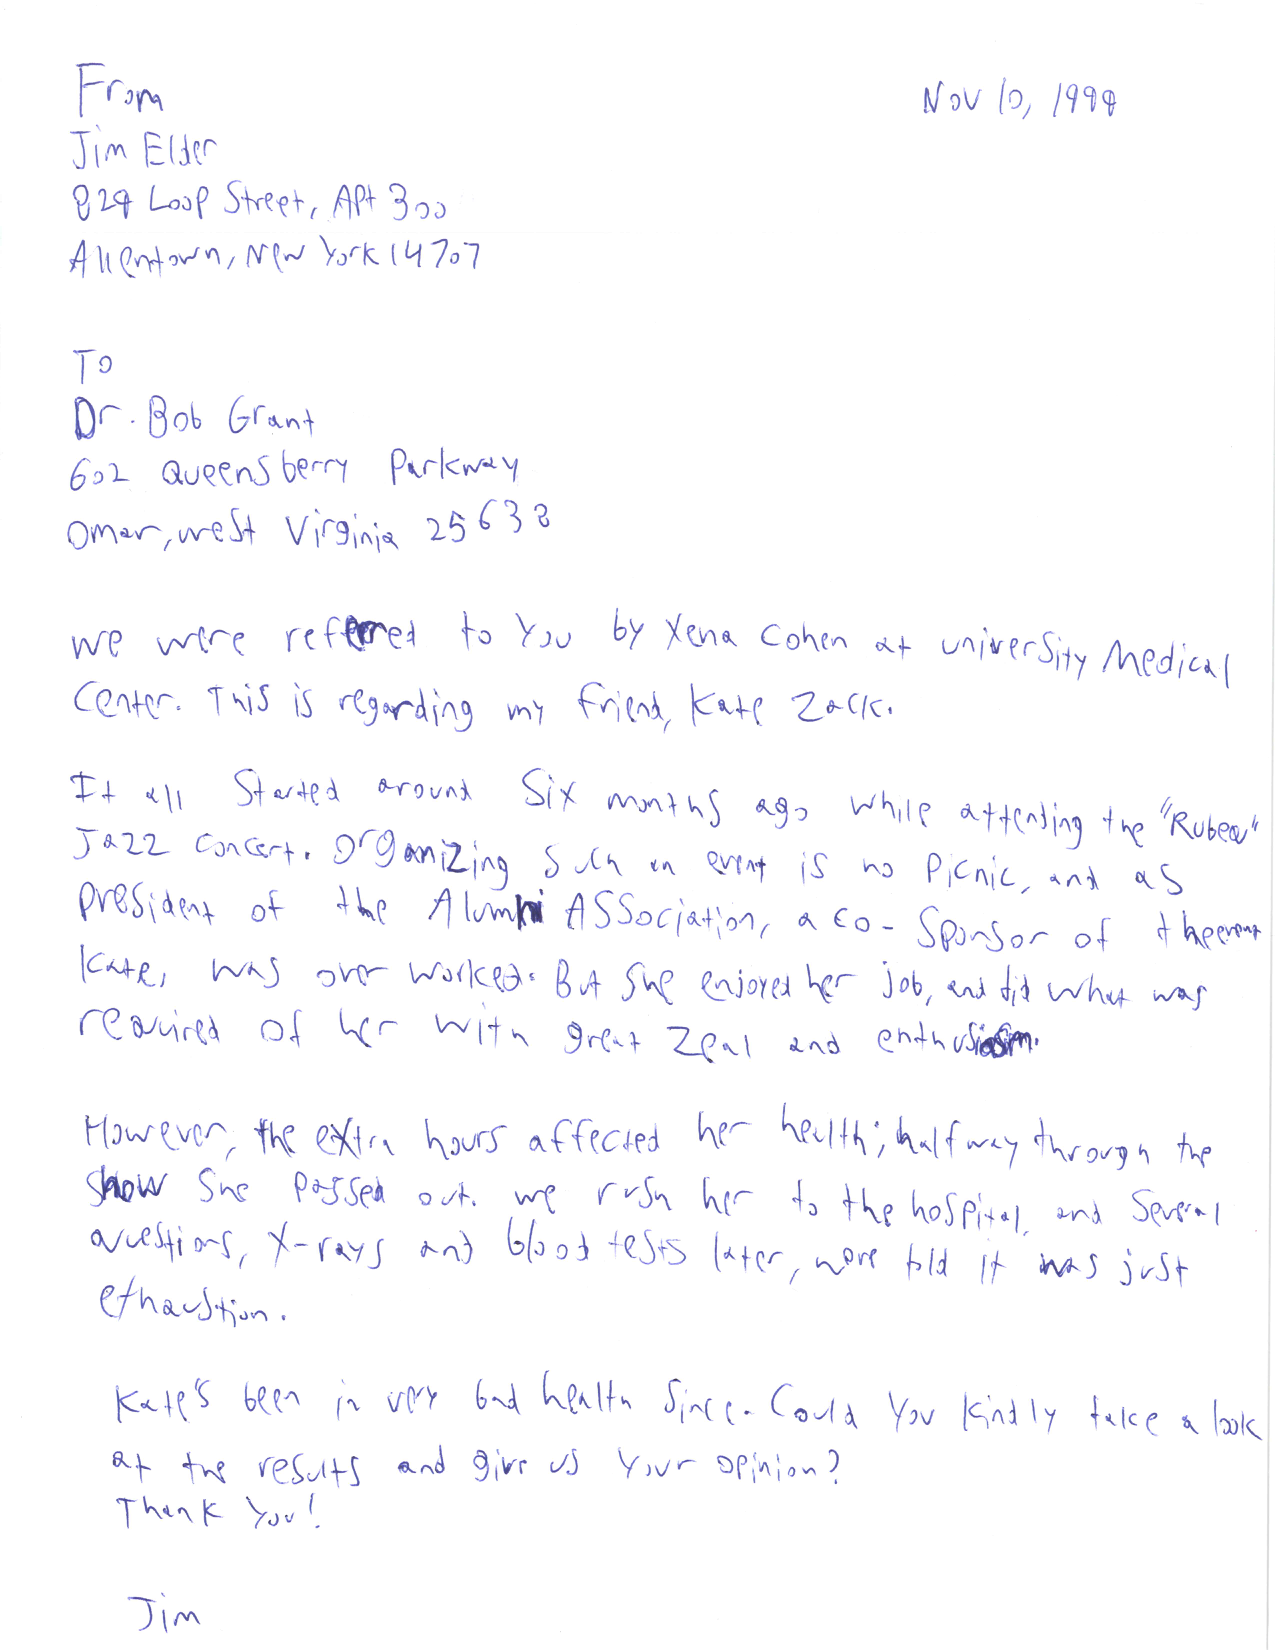 From
Nov 10, 1999
Jim Elder
829 Loop Street, Apt 300
Allentown, New York 14707
To
Dr. Bob Grant
602 Queensberry Parkway
Omar, west Virginia 25638
we were referred to You by Xena Cohen at university Medical
Center. This is regarding my friend, Kate Zack.
It all Started around Six months ago while attending the "Rubeq"
Jazz Concert. Organizing Such an event is no Picnic, and as
President of the Alumni Association, a co-Sponsor of the event
Kate, was over worked. But She enjoyed her job, and did what was
required of her with great Zeal and enthusiasm.
However, the extra hours affected her health; halfway through the
show She passed out. we rush her to the hospital, and Several
questions, X-rays and blood tests later, were told it was just
exhaustion.
Kate's been in very bad health Since. Could You kindly take a look
at the results and give us Your opinion?
Thank You!
Jim